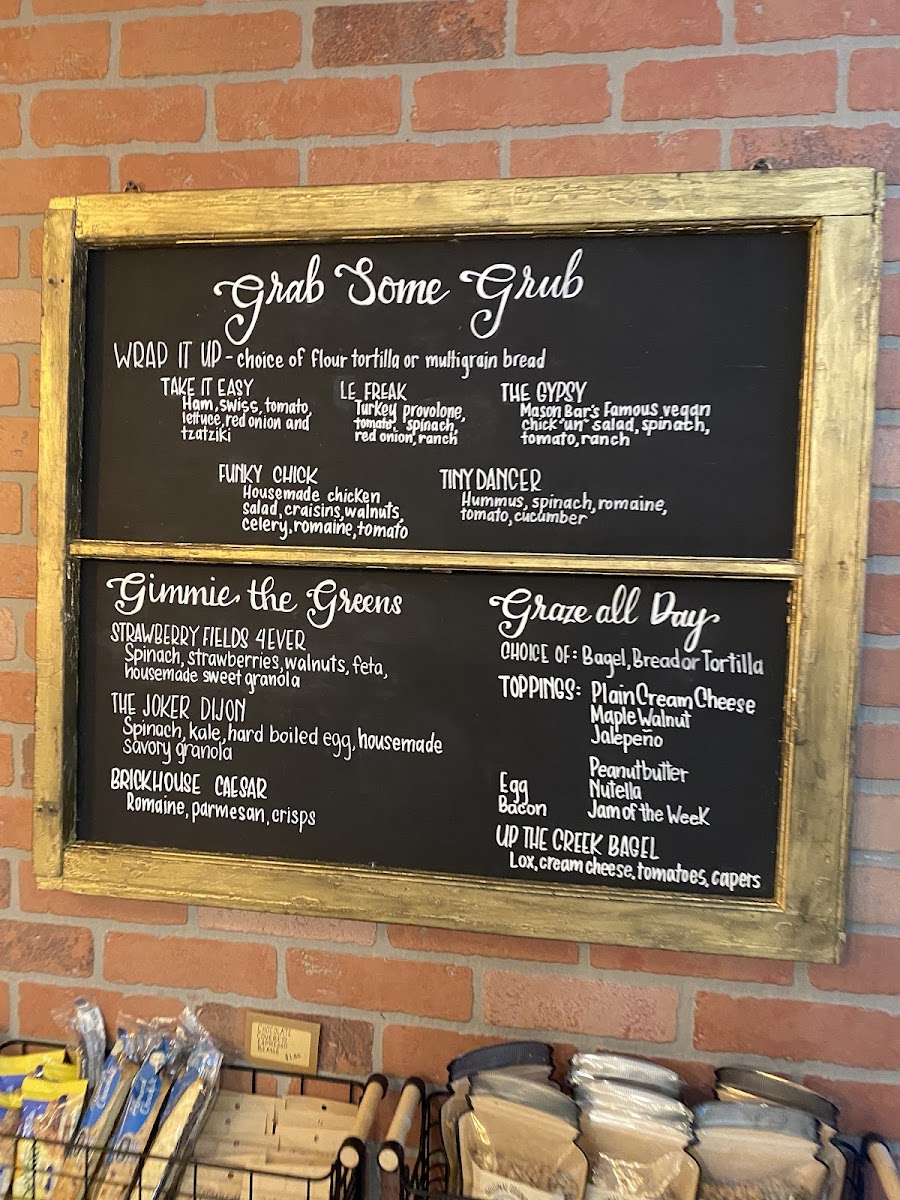 Grab Some Grub
WRAP IT UP - choice of flour tortilla or multigrain bread
TAKE IT EASY
Ham, swiss, tomato,
lettuce, red onion and
tzatziki
LE FREAK
Turkey provolone,
tomato, spinach,
red onion, ranch
THE GYPSY
Mason Bar's Famous vegan
chick "un" salad, spinach,
tomato, ranch
FUNKY CHICK
Housemade chicken
salad, craisins, walnuts,
celery, romaine, tomato
TINY DANCER
Hummus, spinach, romaine,
tomato, cucumber
Gimmie the Greens
STRAWBERRY FIELDS 4EVER
Spinach, strawberries, walnuts, feta,
housemade sweet granola
THE JOKER DIJON
Spinach, kale, hard boiled egg, housemade
savory granola
BRICKHOUSE CAESAR
Romaine, parmesan, crisps
Graze all Day
CHOICE OF: Bagel, Bread or Tortilla
TOPPINGS: Plain Cream Cheese
Maple Walnut
Jalepeño
Peanutbutter
Egg Nutella
Bacon Jam of the Week
UP THE CREEK BAGEL
Lox, cream cheese, tomatoes, capers
CHOCOLATE
COVERED
ESPRESSO
BEANS